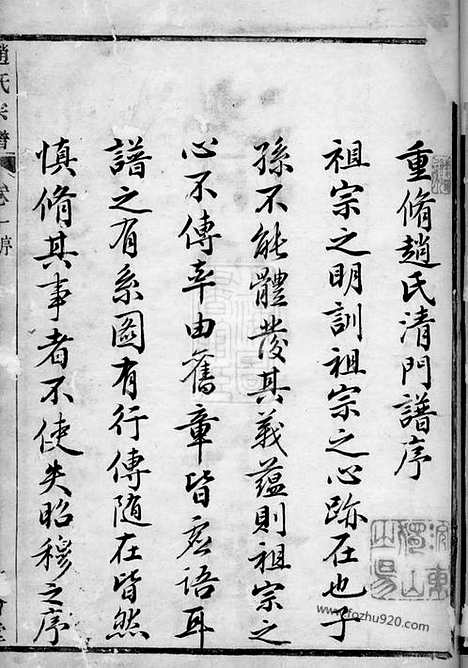 重脩趙氏清門譜序
祖宗之明訓祖宗之心跡在也子
孫不能體發其義蘊則祖宗之
心不傳率由舊章皆虛語耳
譜之有系圖有行傳隨在皆然
慎脩其事者不使失昭穆之序
趙氏宗譜 卷一 序
www.fozhu920.com